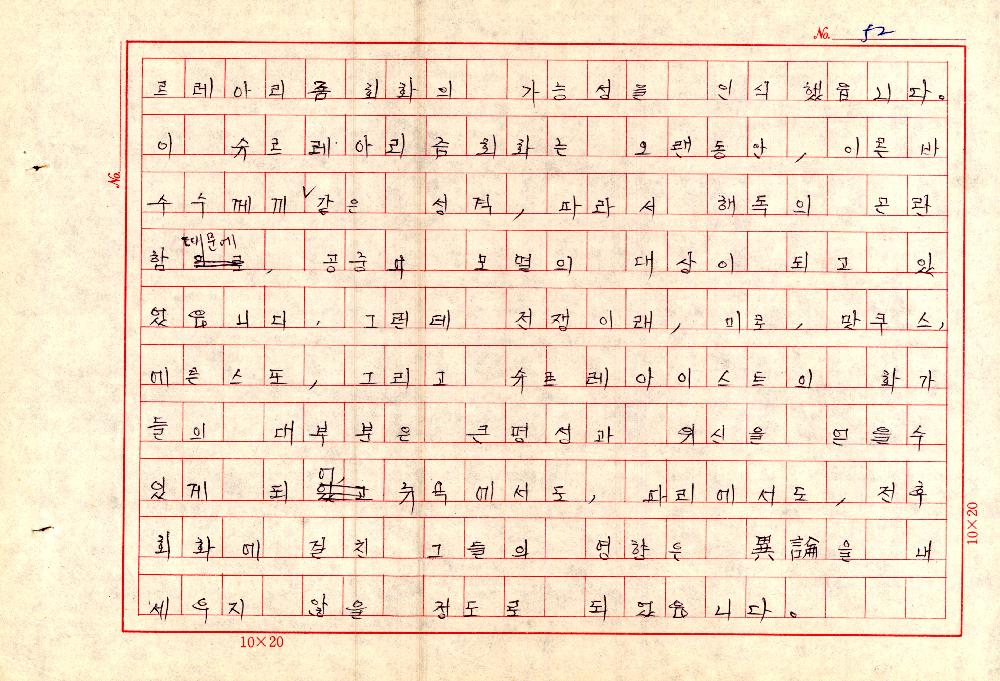 No. 52
르레아리즘 회화의 가능성을 인식했읍니다.
이 슈르레아리즘회화는 오랜동안, 이른바
수수께끼 같은 성격, 따라서 해독의 곤란
함 때문에, 공중의 모멸의 대상이 되고 있
었읍니다. 그런데 전쟁이래, 미로, 맛쿠스,
에른스트, 그리고 슈르레아이스트의 화가
들의 대부분은 큰명성과 위신을 얻을수
있게 되어, 뉴욕에서도, 파리에서도, 전후
회화에 걸친 그들의 영향은 異論을 내
세우지 않을 정도로 되었읍니다.
No.
10×20
10×20